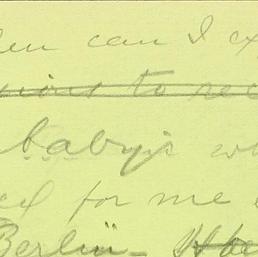 en can I ex
sions to rec
baby's wh
ed for me
Berlin -